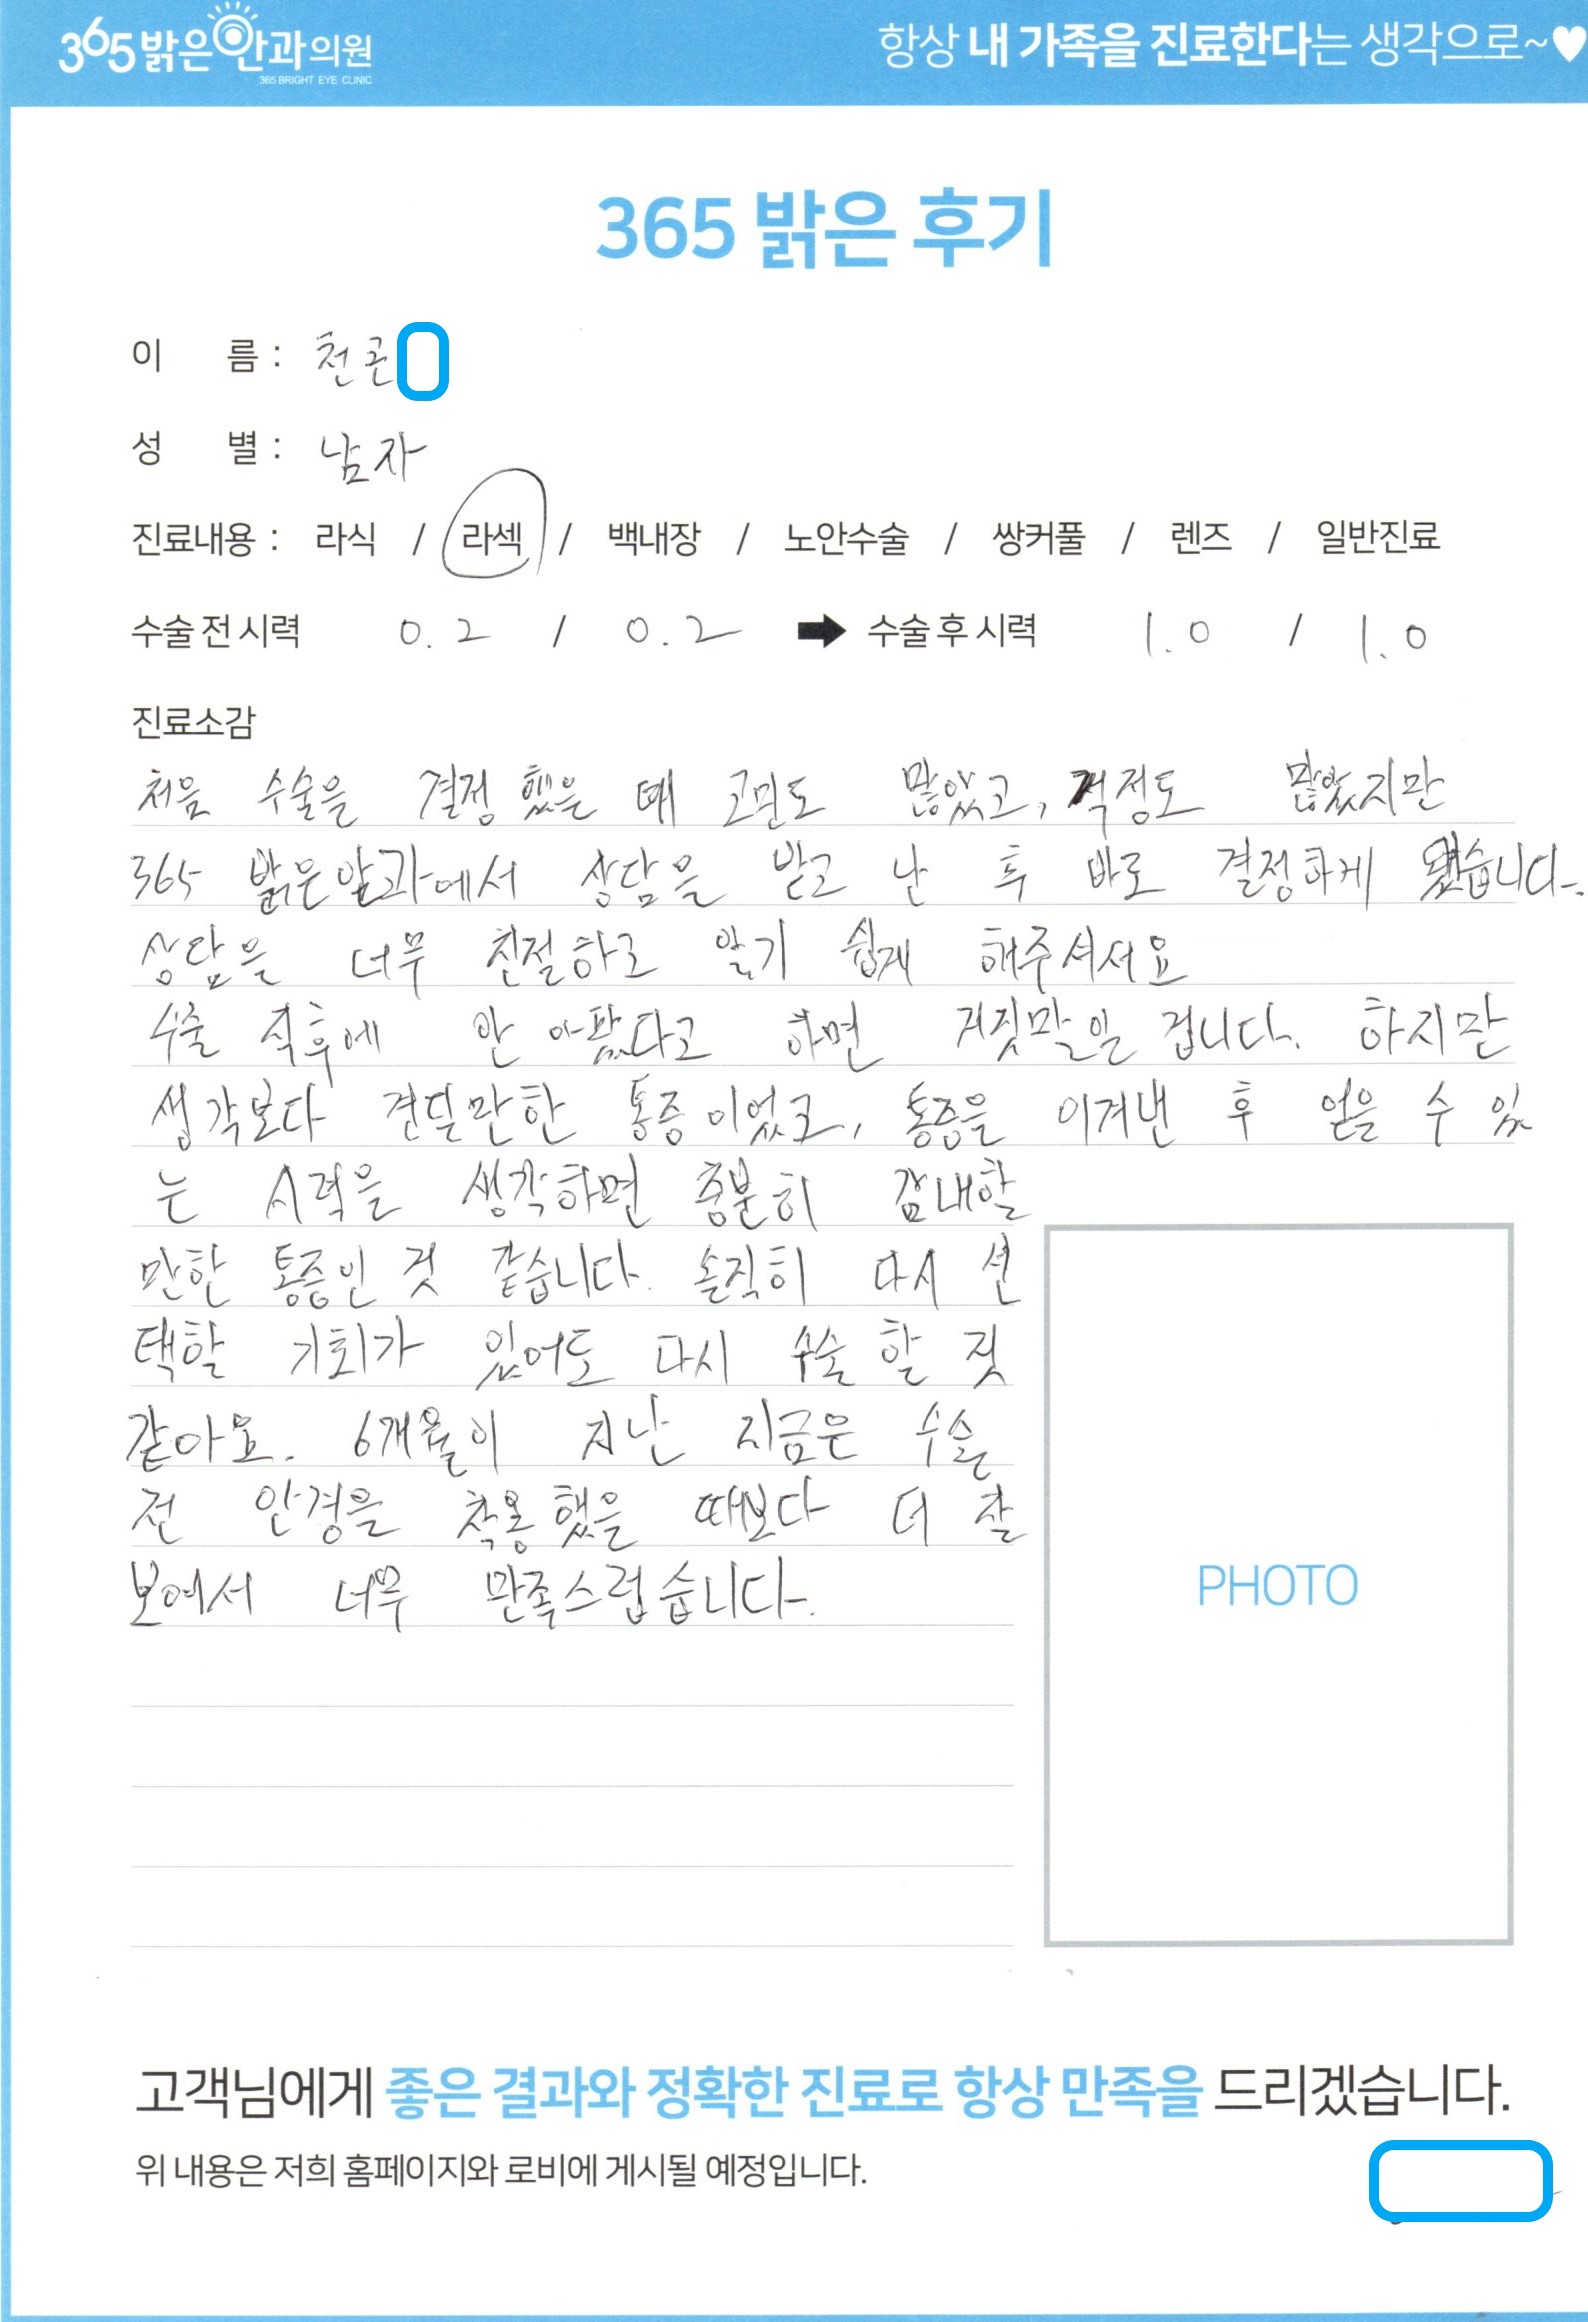 365밝은안과의원
365 BRIGHT EYE CLINIC
항상 내 가족을 진료한다는 생각으로~♥
365 밝은 후기
이 름 : 천곤
성 별 : 남자
진료내용 : 라식 / 라섹 / 백내장 / 노안수술 / 쌍커풀 / 렌즈 / 일반진료
수술 전 시력 0.2 / 0.2 ➡ 수술 후 시력 1.0 / 1.0
진료소감
처음 수술을 결정 했을 때 고민도 많았고, 걱정도 많았지만
365 밝은안과에서 상담을 받고 난 후 바로 결정하게 됐습니다.
상담을 너무 친절하고 알기 쉽게 해주셔서요
수술 직후에 안 아팠다고 하면 거짓말일 겁니다. 하지만
생각보다 견딜만한 통증이었고, 통증을 이겨낸 후 얻을 수 있
는 시력을 생각하면 충분히 감내할
만한 통증인 것 같습니다. 솔직히 다시 선
택할 기회가 있어도 다시 수술 할 것
같아요. 6개월이 지난 지금은 수술
전 안경을 착용했을 때보다 더 잘
보여서 너무 만족스럽습니다.
PHOTO
고객님에게 좋은 결과와 정확한 진료로 항상 만족을 드리겠습니다.
위 내용은 저희 홈페이지와 로비에 게시될 예정입니다.